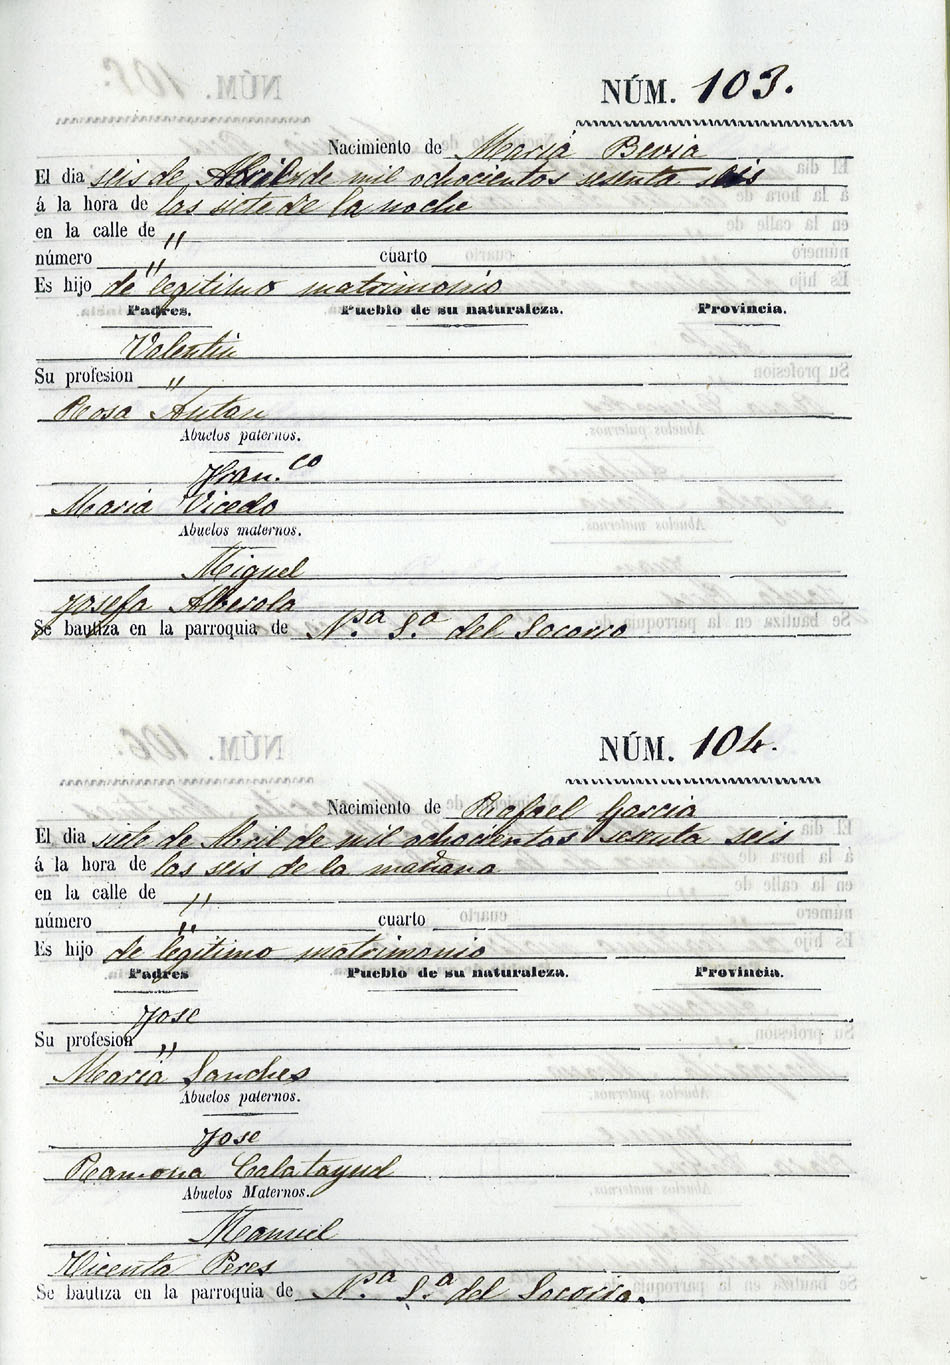 NÚM. 103.
Nacimiento de Maria Bevia
El dia seis de Abril de mil ochocientos sesenta seis
á la hora de las siete de la noche
en la calle de "
número " cuarto
Es hijo de legitimo matrimonio
Padres. Pueblo de su naturaleza. Provincia.
Valentin
Su profesion "
Rosa Antan
Abuelos paternos.
Fran.co
Maria Vicedo
Abuelos maternos.
Miguel
Josefa Alberola
Se bautiza en la parroquia de N.a S.a del Socorro
NÚM. 104.
Nacimiento de Rafael Garcia
El dia siete de Abril de mil ochocientos sesenta seis
á la hora de las seis de la mañana
en la calle de "
número " cuarto
Es hijo de legitimo matrimonio
Padres Pueblo de su naturaleza. Provincia.
Jose
Su profesion "
Maria Sanches
Abuelos paternos.
Jose
Ramona Calatayud
Abuelos Maternos.
Manuel
Vicenta Peres
Se bautiza en la parroquia de N.a S.a del Socorro.